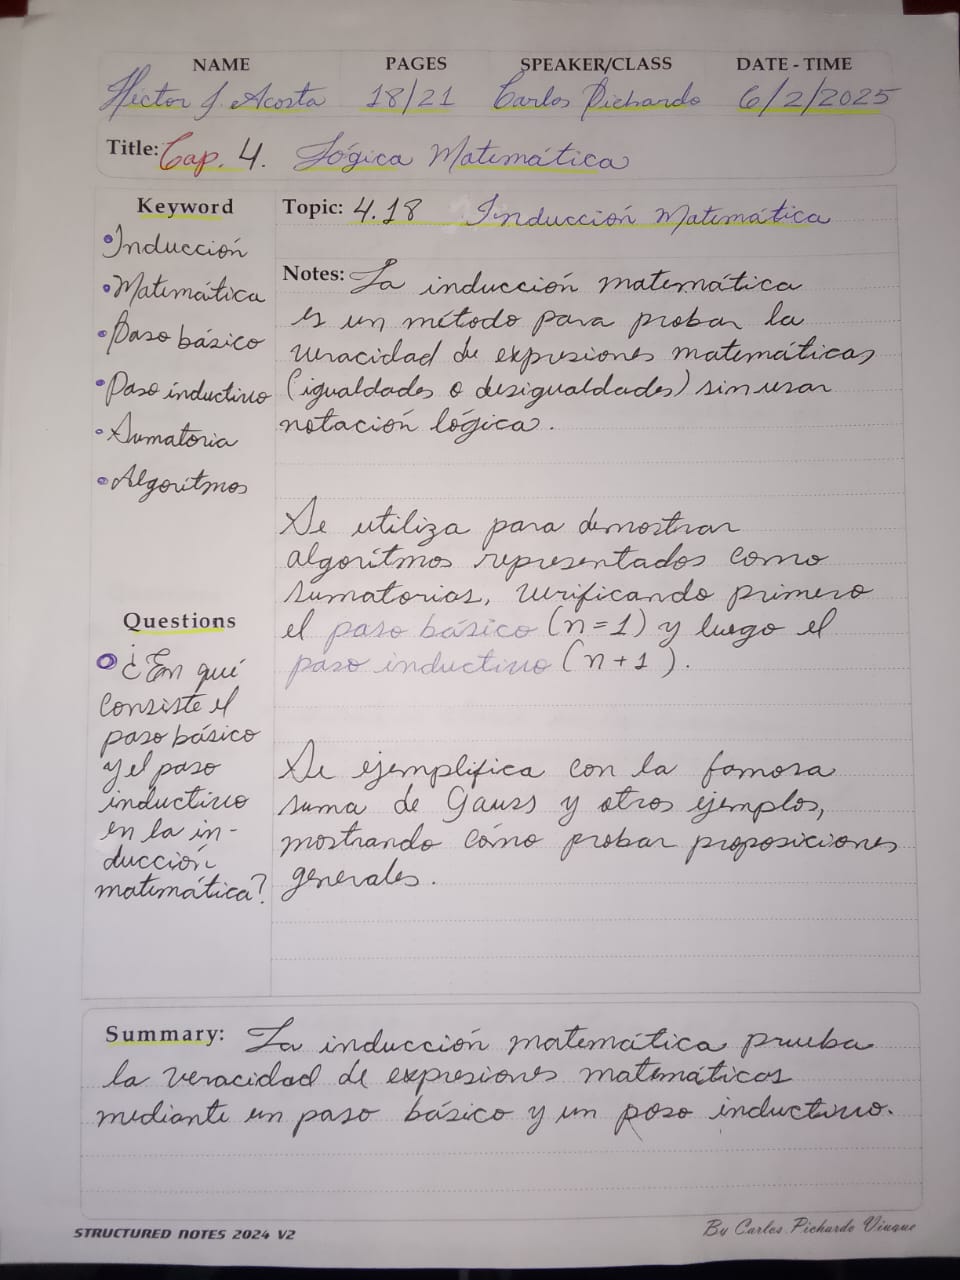 NAME PAGES SPEAKER/CLASS DATE - TIME
Héctor J. Acosta 18/21 Carlos Pichardo 6/2/2025
Title: Cap. 4. Lógica Matemática
Keyword
• Inducción
• Matemática
• Paso básico
• Paso inductivo
• Sumatoria
• Algoritmos
Questions
¿En qué
consiste el
paso básico
y el paso
inductivo
en la in-
ducción
matemática?
Topic: 4.18 Inducción Matemática
Notes: La inducción matemática
es un método para probar la
veracidad de expresiones matemáticas
(igualdades o desigualdades) sin usar
notación lógica.
Se utiliza para demostrar
algoritmos representados como
sumatorias, verificando primero
el paso básico (n=1) y luego el
paso inductivo (n+1).
Se ejemplifica con la famosa
suma de Gauss y otros ejemplos,
mostrando cómo probar proposiciones
generales.
Summary: La inducción matemática prueba
la veracidad de expresiones matemáticas
mediante un paso básico y un paso inductivo.
STRUCTURED NOTES 2024 V2
By Carlos Pichardo Viuque